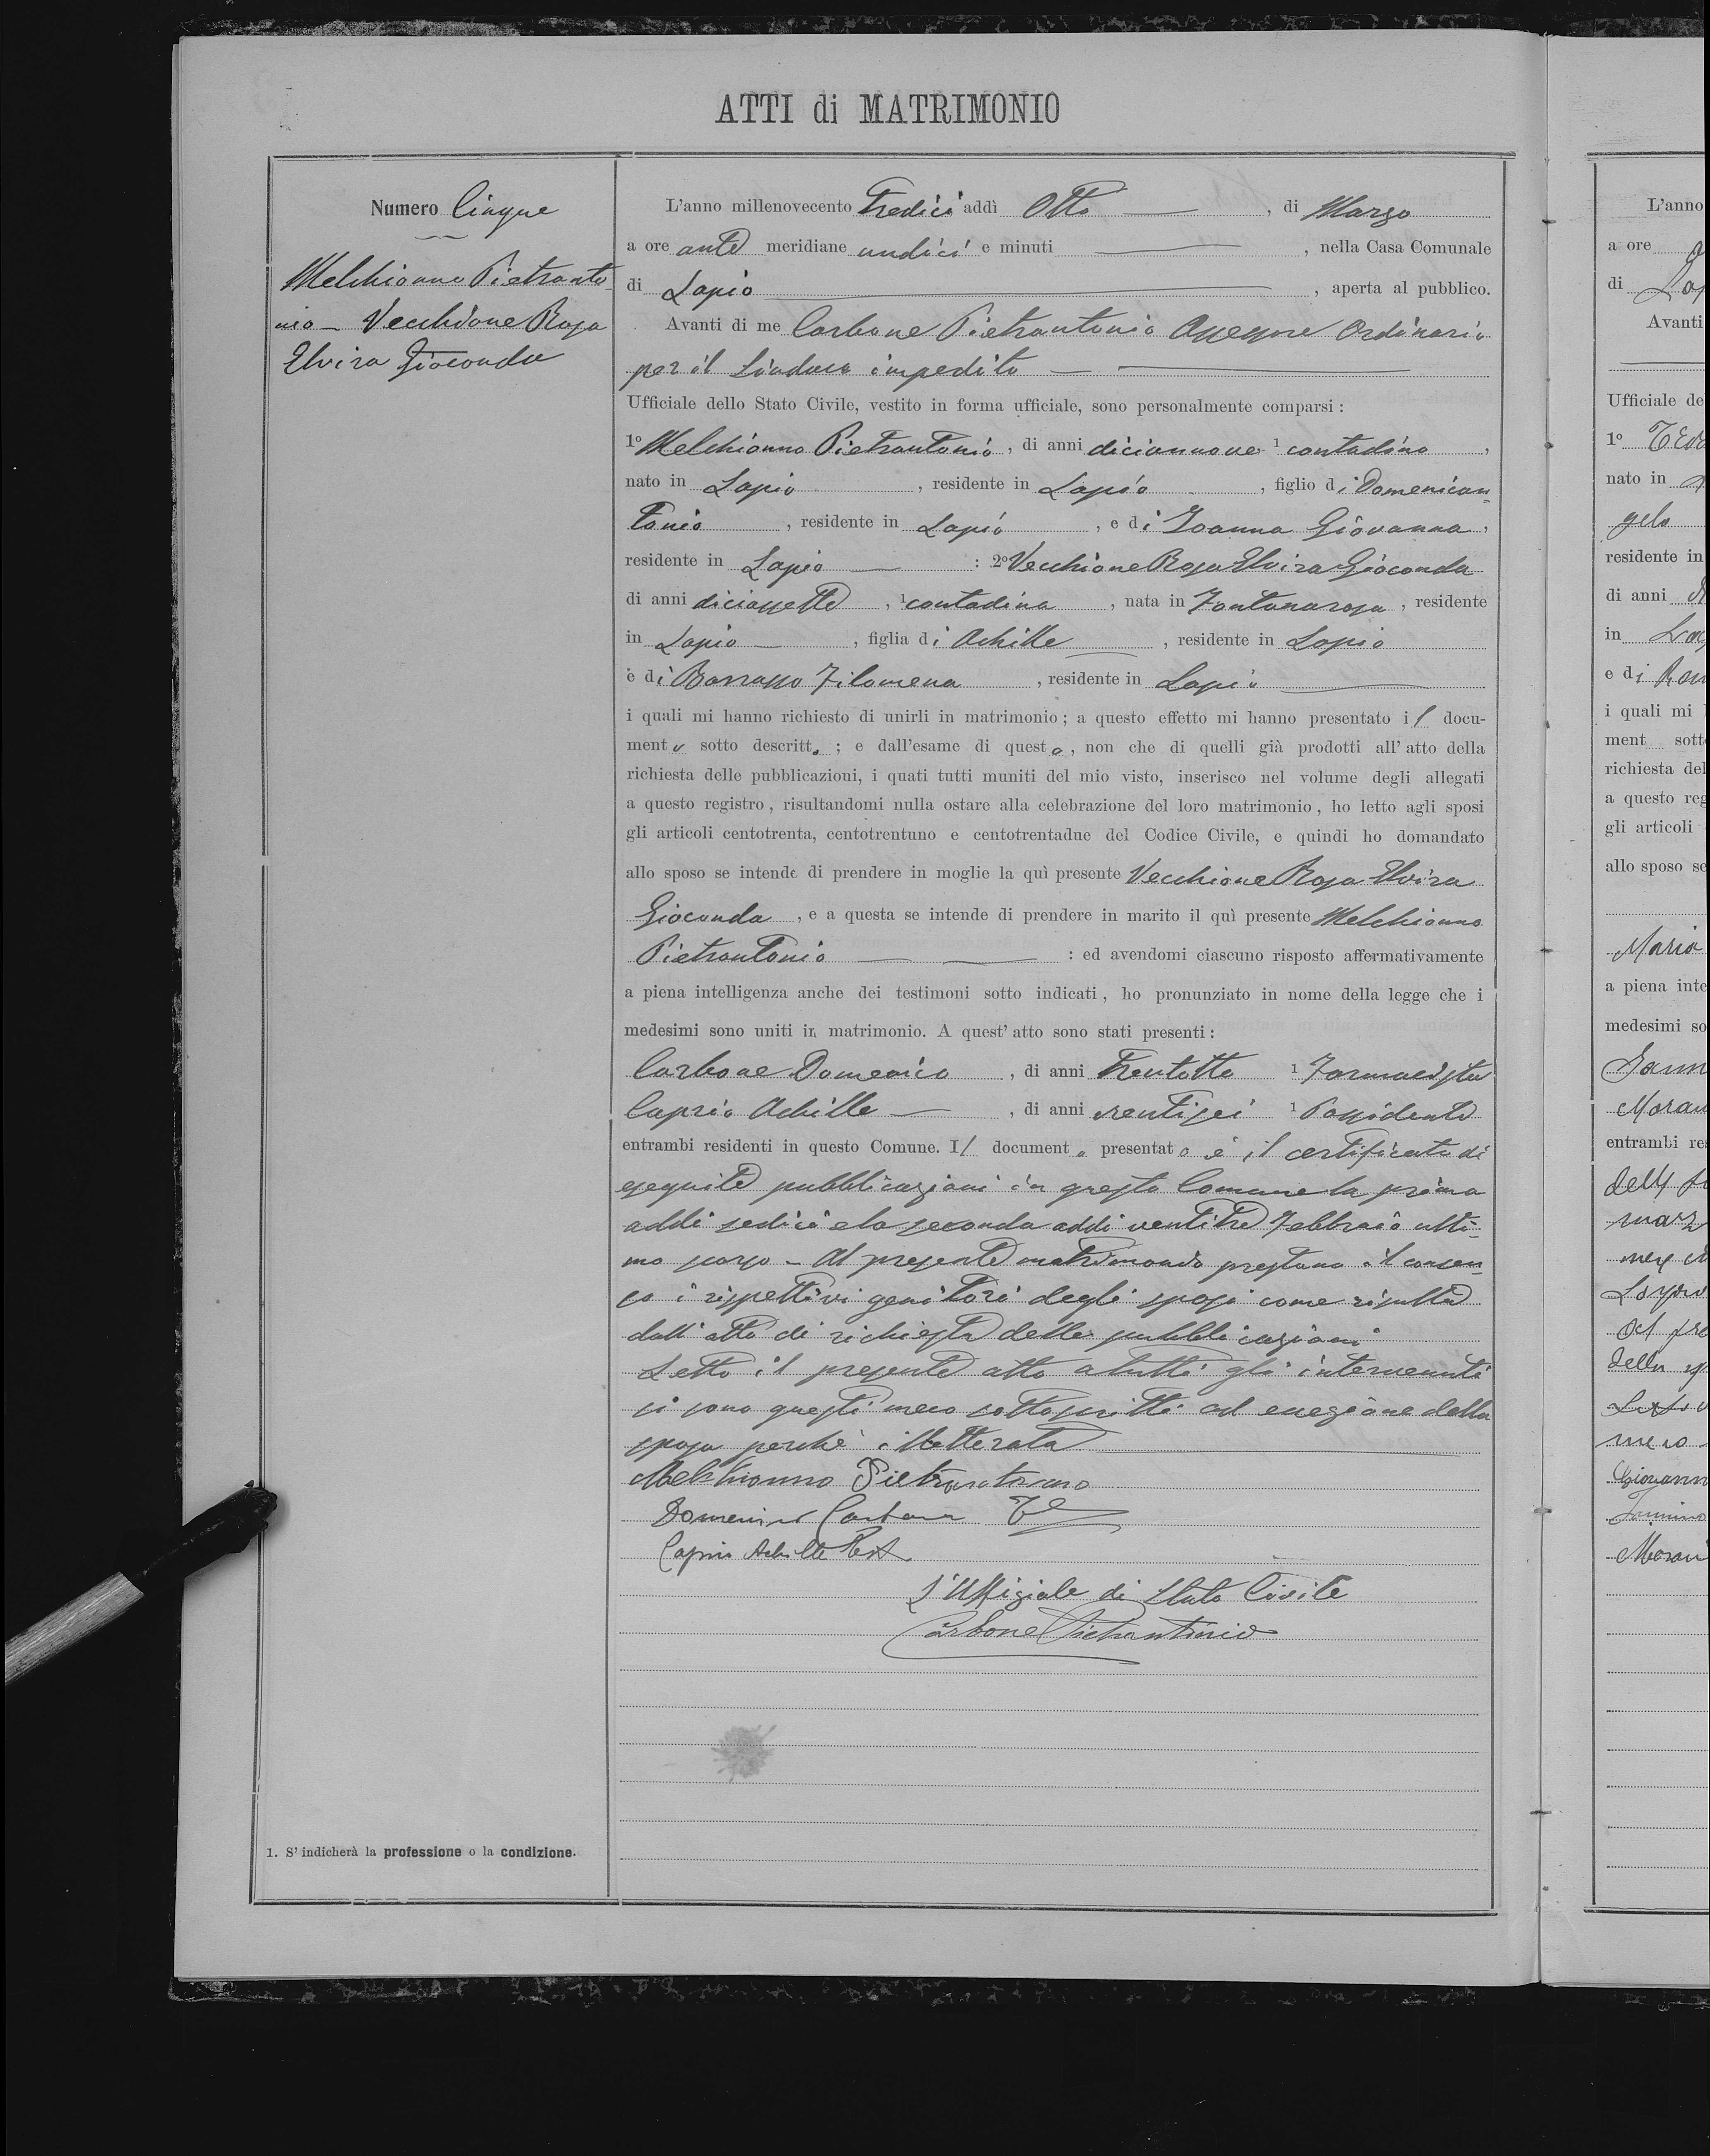 ATTI di MATRIMONIO
Numero Cinque
Melchionno Pietranto-
nio - Vecchione Rosa
Elvira Gioconda
1. S'indicherà la professione o la condizione.
L'anno millenovecento Tredici addì Otto, di Marzo
a ore ante meridiane undici e minuti, nella Casa Comunale
di Lapio, aperta al pubblico.
Avanti di me Carbone Pietrantonio Assessore Ordinario
per il Sindaco impedito
Ufficiale dello Stato Civile, vestito in forma ufficiale, sono personalmente comparsi:
1º Melchionno Pietrantonio, di anni diciannove 1 contadino,
nato in Lapio, residente in Lapio, figlio di Domenican-
tonio, residente in Lapio, e di Ioanna Giovanna,
residente in Lapio : 2º Vecchione Rosa Elvira Gioconda
di anni diciassette, 1 contadina, nata in Fontanarosa, residente
in Lapio, figlia di Achille, residente in Lapio
e di Barrasso Filomena, residente in Lapio
i quali mi hanno richiesto di unirli in matrimonio; a questo effetto mi hanno presentato il docu-
mento sotto descritto; e dall'esame di questo, non che di quelli già prodotti all'atto della
richiesta delle pubblicazioni, i quati tutti muniti del mio visto, inserisco nel volume degli allegati
a questo registro, risultandomi nulla ostare alla celebrazione del loro matrimonio, ho letto agli sposi
gli articoli centotrenta, centotrentuno e centotrentadue del Codice Civile, e quindi ho domandato
allo sposo se intende di prendere in moglie la quì presente Vecchione Rosa Elvira
Gioconda, e a questa se intende di prendere in marito il quì presente Melchionno
Pietrantonio : ed avendomi ciascuno risposto affermativamente
a piena intelligenza anche dei testimoni sotto indicati, ho pronunziato in nome della legge che i
medesimi sono uniti in matrimonio. A quest'atto sono stati presenti:
Carbone Domenico, di anni Trentotto 1 Farmacista
Caprio Achille, di anni ventisei 1 Possidente
entrambi residenti in questo Comune. Il documento presentato è il certificato di
eseguite pubblicazioni in questo Comune la prima
addì sedici e la seconda addì ventitre Febbraio ulti-
mo scorso - Al presente matrimonio prestano il consen-
so i rispettivi genitori degli sposi come risulta
dall'atto di richiesta delle pubblicazioni
Letto il presente atto a tutti gli intervenuti
si sono questi meco sottoscritti ad eccezione della
sposa perchè illetterata
Melchionno Pietrantonio
Domenico Carbone Te
Caprio Achille Test
L'Uffiziale di Stato Civile
Carbone Pietrantonio
L'anno
a ore
di
Avanti
Ufficiale de
1º
nato in
gelo
residente in
di anni
in
e di
i quali mi
ment sott
richiesta del
a questo reg
gli articoli
allo sposo se
Maria
a piena inte
medesimi so
entrambi re
della
meco